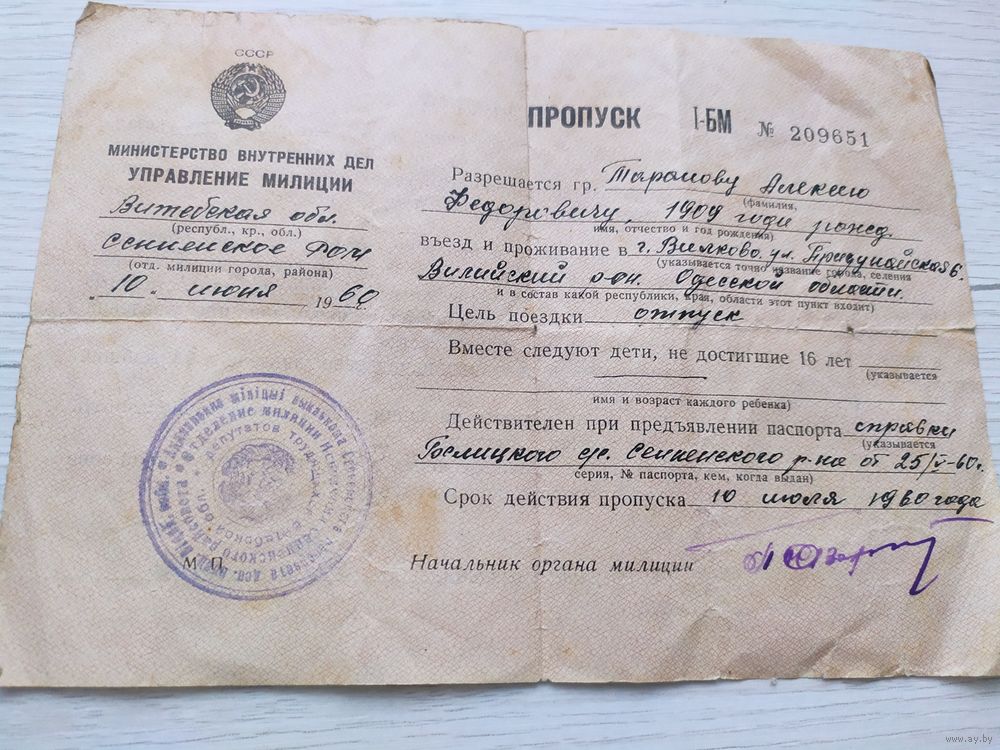 СССР
МИНИСТЕРСТВО ВНУТРЕННИХ ДЕЛ
УПРАВЛЕНИЕ МИЛИЦИИ
Витебская обл.
(республ., кр., обл.)
Сенненское РОМ
(отд. милиции города, района)
10. июня 1960 г.
М. П.
ПРОПУСК I-БМ № 209651
Разрешается гр. Алексею
(фамилия,
Федоровичу, 1909 года рожд.
имя, отчество и год рождения)
въезд и проживание в г. Вилково. ул. Придунайская 6.
(указывается точно название города, селения
р-он. Одесской области.
и в состав какой республики, края, области этот пункт входит)
Цель поездки отпуск
Вместе следуют дети, не достигшие 16 лет
(указывается
имя и возраст каждого ребенка)
Действителен при предъявлении паспорта справки
(указывается
с/с. Сенненского р-на от 25/V-60г.
серия, № паспорта, кем, когда выдан)
Срок действия пропуска 10 июля 1960 года
Начальник органа милиции
www.ay.by